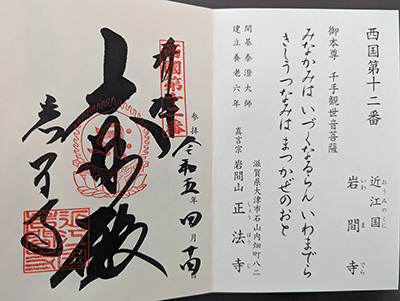 西国第十二番
近江国
おうみのくに
岩間寺
いわまでら
御本尊 千手観世音菩薩
みなかみは いづくなるらん いわまでら
きしうつなみは まつかぜのおと
開基 泰澄大師
建立 養老六年
滋賀県大津市石山内畑町八二
真言宗 岩間山 正法寺
しょうほうじ
参拝 令和五年 四月
奉拝
西国第十二番
大悲殿